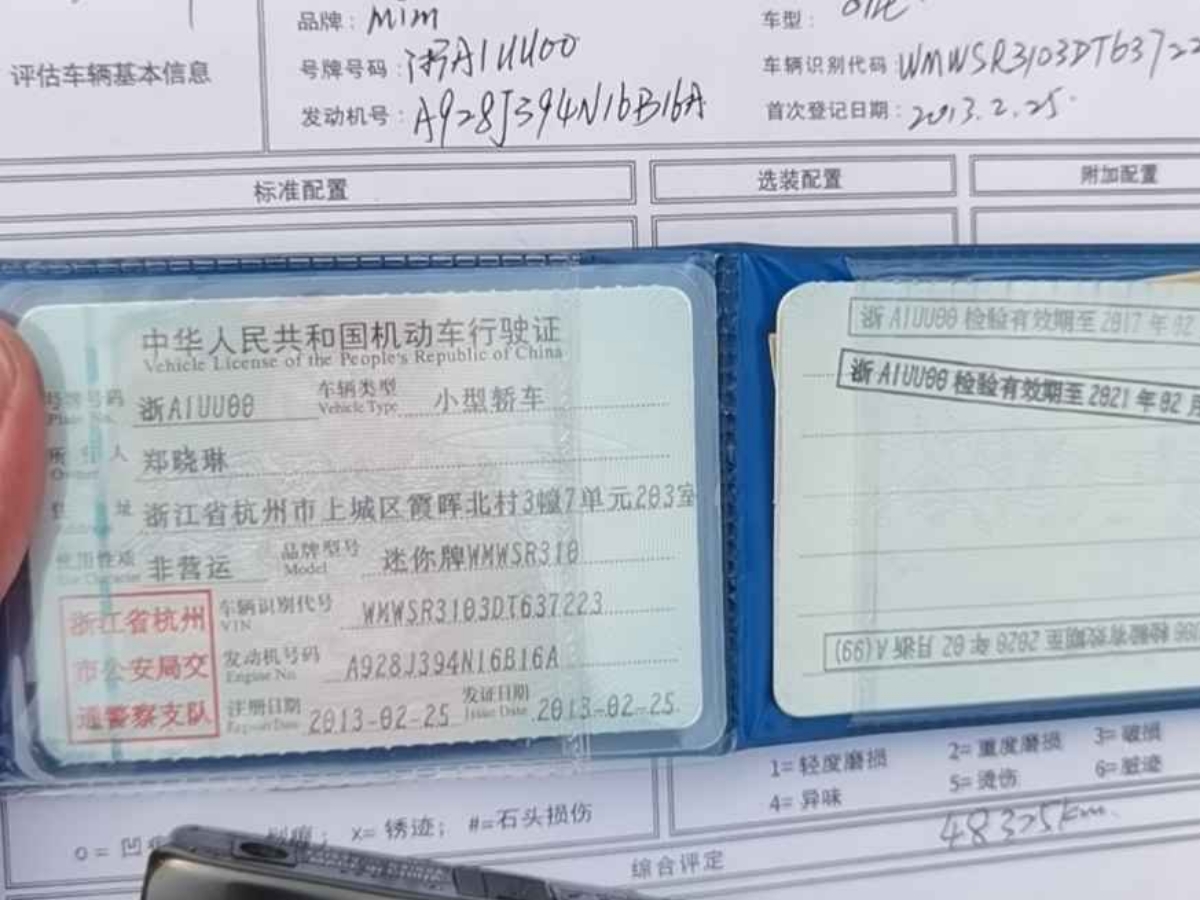 品牌: MINI
车型: ONE
评估车辆基本信息
号牌号码: 浙A1UU00
车辆识别代码: WMWSR3103DT637223
发动机号: A928J394N16B16A
首次登记日期: 2013.2.25.
标准配置
选装配置
附加配置
中华人民共和国机动车行驶证
Vehicle License of the People's Republic of China
号牌号码 浙A1UU00 车辆类型 小型轿车
Plate No. Vehicle Type
所有人 郑晓琳
Owner
住址 浙江省杭州市上城区霞晖北村3幢7单元203室
Address
使用性质 非营运 品牌型号 迷你牌WMWSR310
Use Character Model
浙江省杭州
市公安局交
通警察支队
车辆识别代号 WMWSR3103DT637223
VIN
发动机号码 A928J394N16B16A
Engine No.
注册日期 2013-02-25 发证日期 2013-02-25
Register Date Issue Date
浙A1UU00 检验有效期至 2017年02
浙A1UU00 检验有效期至 2021年02月
检验有效期至 2020年 02月 浙A(99)
1=轻度磨损 2=重度磨损 3=破损
4=异味 5=烫伤 6=脏迹
x=锈迹; #=石头损伤
48325km
综合评定